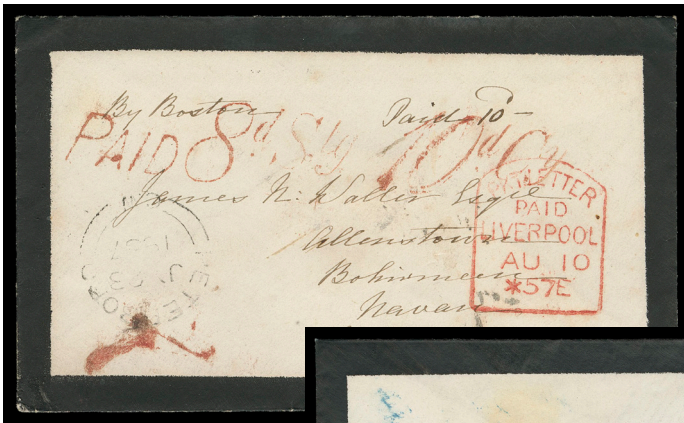 By Boston Paid 10
PAID 8d Stg 10d Cy
James N. Waller Esqre
Allenstown
Bohirmeen
Navan
PKT. LETTER
PAID
LIVERPOOL
AU 10
*57E
PETERBORO
JY 23
1857